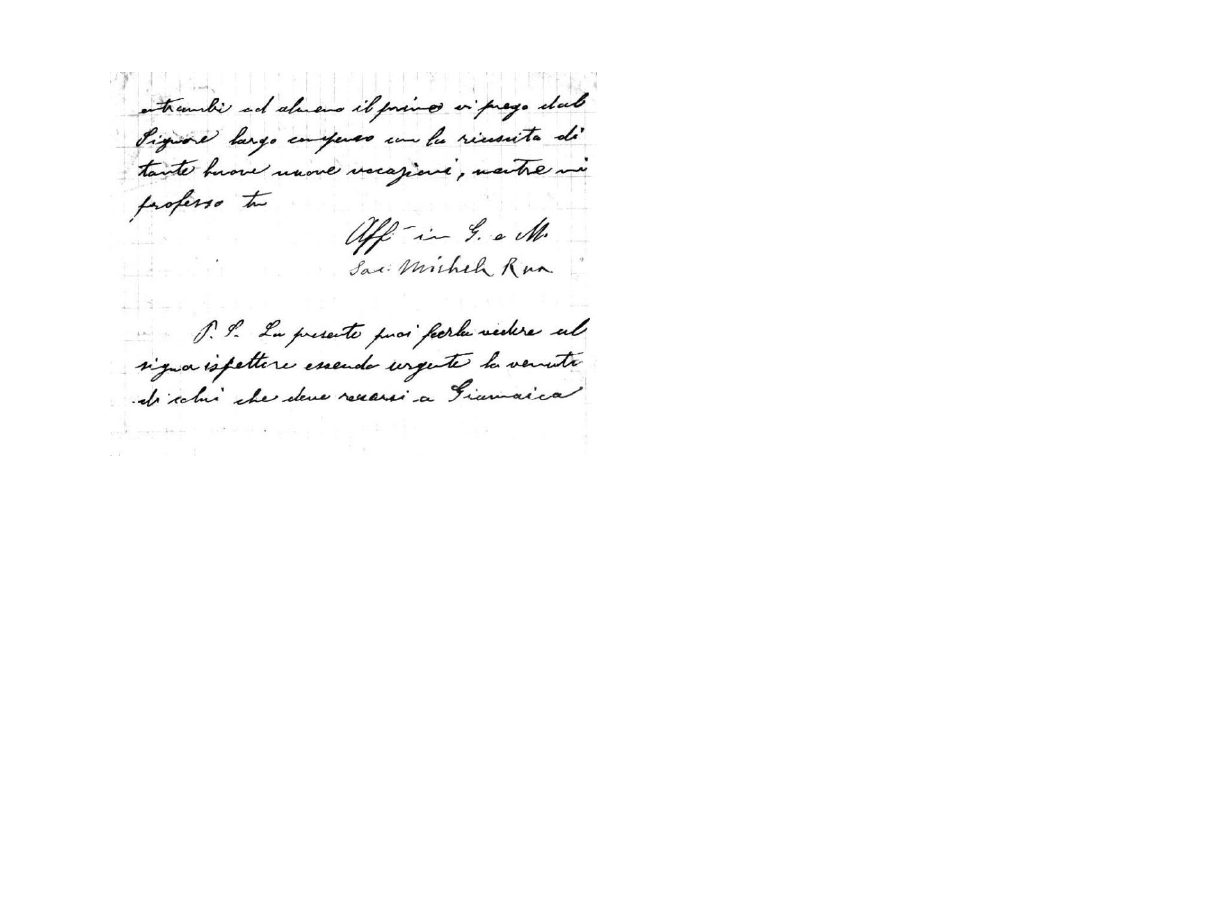 entrambi od almeno il primo vi prego dal
Signore largo compenso con la riuscita di
tante buone nuove vocazioni, mentre mi
professo tuo
Aff. in G. e M.
Sac. Michele Rua
P. S. La presente puoi farla vedere al
signor ispettore essendo urgente la venuta
di colui che deve recarsi a Giamaica